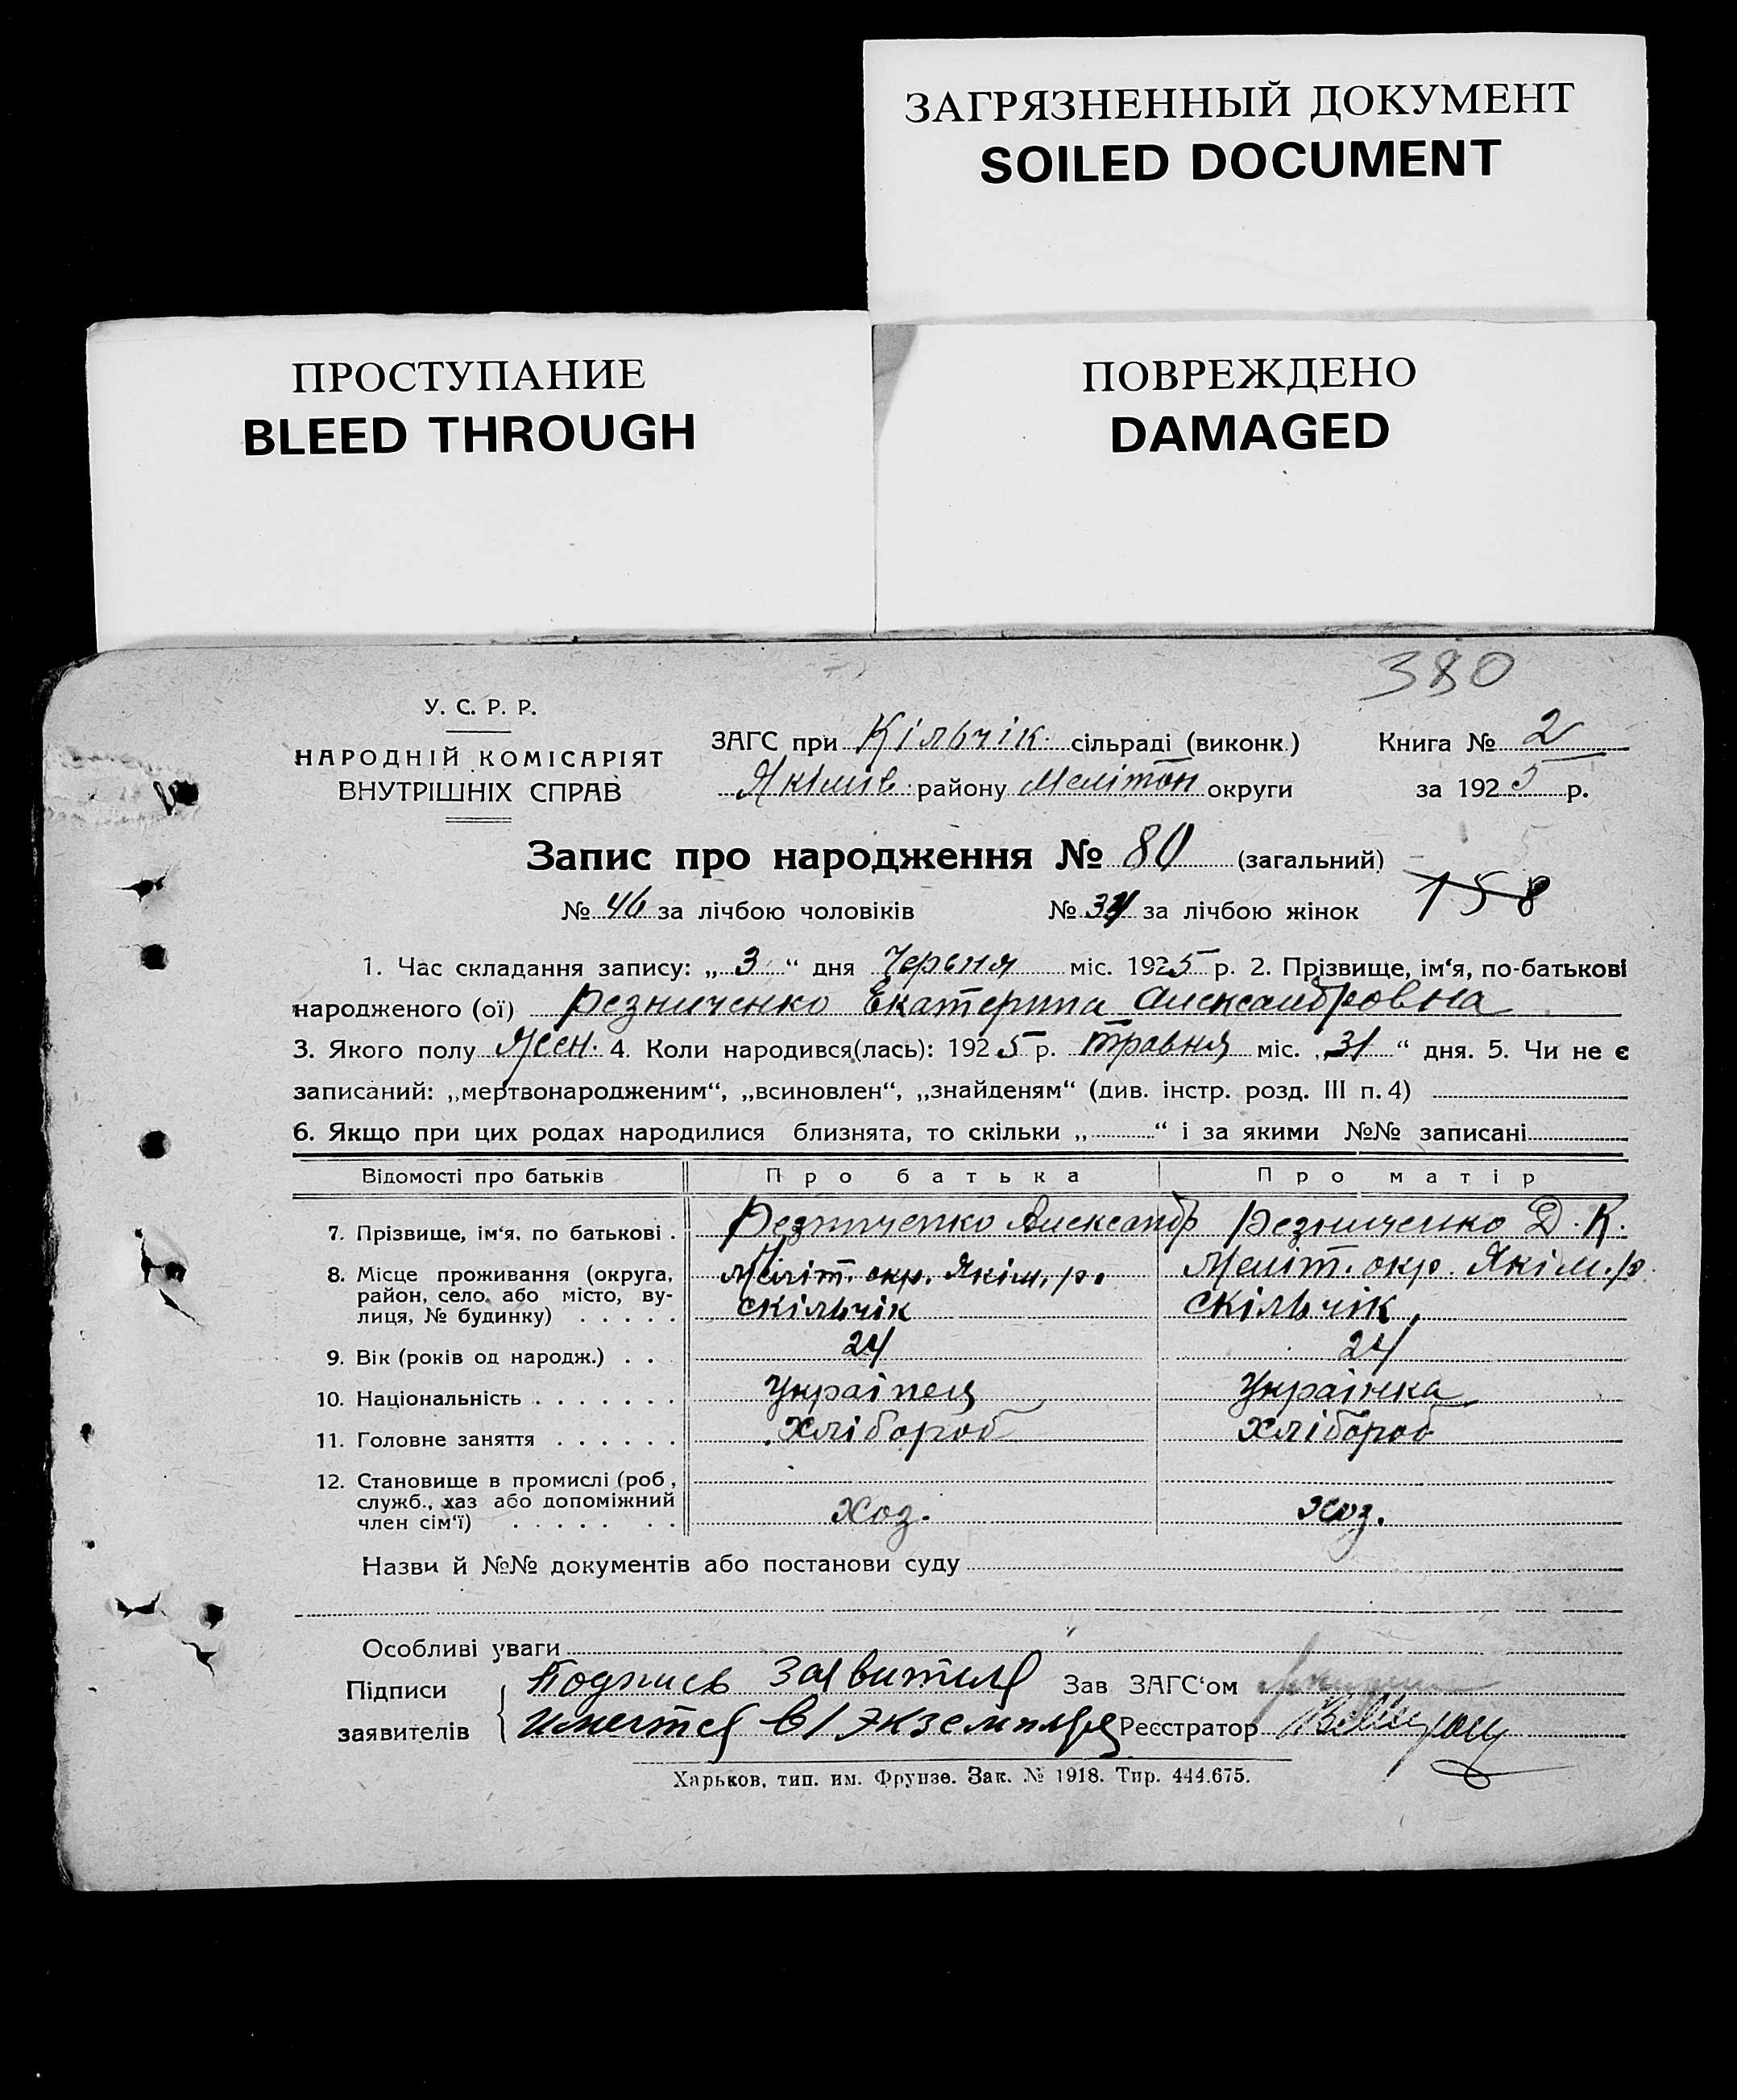 ЗАГРЯЗНЕННЫЙ ДОКУМЕНТ
SOILED DOCUMENT
ПРОСТУПАНИЕ
BLEED THROUGH
ПОВРЕЖДЕНО
DAMAGED
380
У. С. Р. Р.
НАРОДНІЙ КОМІСАРІЯТ
ВНУТРІШНІХ СПРАВ
ЗАГС при Кільчік. сільраді (виконк.) Книга № 2
Якімів району Мелітоп округи за 1925 р.
Запис про народження № 80 (загальний)
№ 46 за лічбою чоловіків № 34 за лічбою жінок 158
1. Час складання запису: „ 3 “ дня Червня міс. 1925 р. 2. Прізвище, ім‘я, по-батькові
народженого (ої) Резниченко Екатерина Александровна
3. Якого полу Жен. 4. Коли народився(лась): 1925 р. Травня міс. „ 31 “ дня. 5. Чи не є
записаний: „мертвонародженим“, „всиновлен“, „знайденям“ (див. інстр. розд. III п. 4)
6. Якщо при цих родах народилися близнята, то скільки „ “ і за якими №№ записані
Відомості про батьків Про батька Про матір
7. Прізвище, ім‘я, по батькові . Резниченко Александр Резниченко Д. К.
8. Місце проживання (округа, Меліт. окр. Якім. р. Меліт. окр. Якім. р.
район, село або місто, ву-
лиця, № будинку) . . . . . скільчік скільчік
9. Вік (років од народж.) . . 24 24
10. Національність . . . . . . . Українец Українка
11. Головне заняття . . . . . . Хлібороб Хлібороб
12. Становище в промислі (роб.,
служб., хаз або допоміжний
член сім‘ї) . . . . . . . Хоз. хоз.
Назви й №№ документів або постанови суду
Особливі уваги
Підписи Подпись заявителя Зав ЗАГС‘ом
заявителів имеется в 1 экземпляре Реєстратор
Харьков, тип. им. Фрунзе. Зак. № 1918. Тир. 444.675.